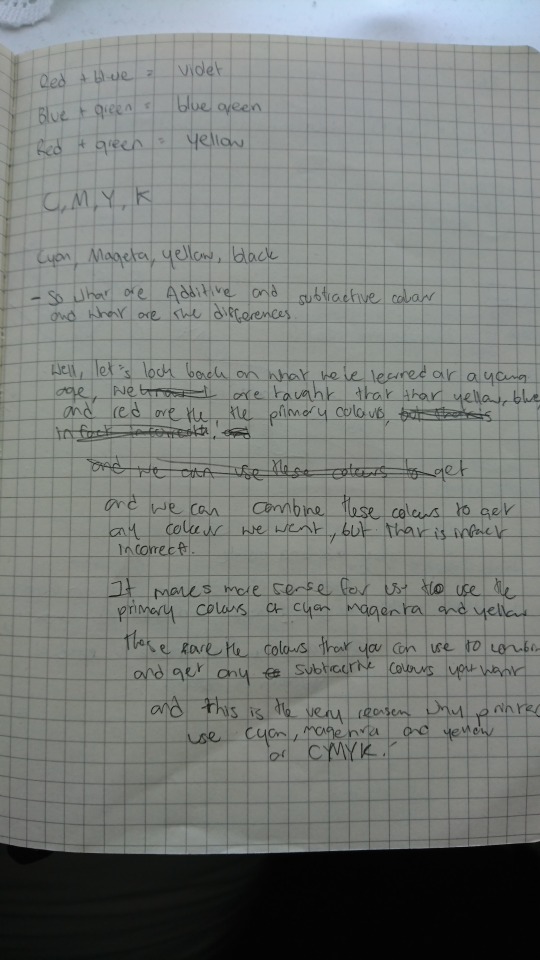 Red + blue = violet
Blue + green = blue green
Red + green = yellow
C, M, Y, K
Cyan, Mageta, yellow, black
- So what are Additive and subtractive colour
and what are the differences
Well, let's look back on what we've learned at a young
age, we are taught that that yellow, blue
and red are the, the primary colours, but that is
in fact incorrect,
and we can use these colours to get
and we can combine these colours to get
any colour we want, but that is infact
incorrect.
It makes more sense for us to use the
primary colours of cyan magenta and yellow
these are the colours that you can use to combin
and get any subtractive colours you want
and this is the very reason why printer
use cyan, magenta and yellow
or CMYK.